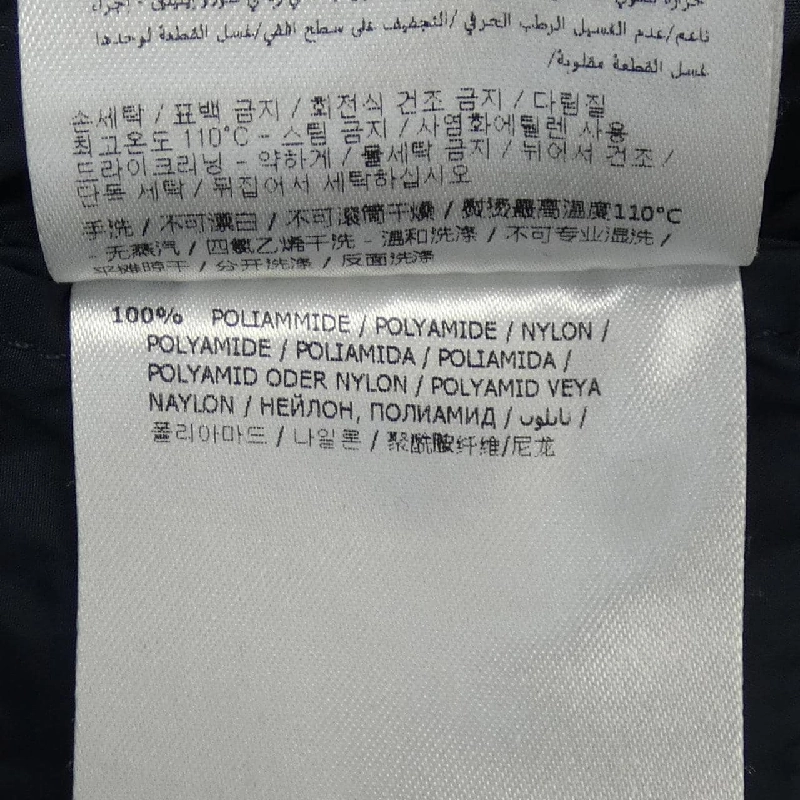 ناعم/عدم الغسيل الرطب الحرفي /التجفيف على سطح افقي/غسل القطعة لوحدها
/غسل القطعة مقلوبة
손세탁 / 표백 금지 / 회전식 건조 금지 / 다림질
최고온도 110°C - 스팀 금지 / 사염화에틸렌 사용
드라이크리닝 - 약하게 / 물세탁 금지 / 뉘어서 건조 /
단독 세탁 / 뒤집어서 세탁하십시오
手洗 / 不可漂白 / 不可滚筒干燥 / 熨烫最高温度110°C
- 无蒸汽 / 四氯乙烯干洗 - 温和洗涤 / 不可专业湿洗 /
平摊晾干 / 分开洗涤 / 反面洗涤
100% POLIAMMIDE / POLYAMIDE / NYLON /
POLYAMIDE / POLIAMIDA / POLIAMIDA /
POLYAMID ODER NYLON / POLYAMID VEYA
NAYLON / НЕЙЛОН, ПОЛИАМИД / نايلون /
폴리아마드 / 나일론 / 聚酰胺纤维/尼龙